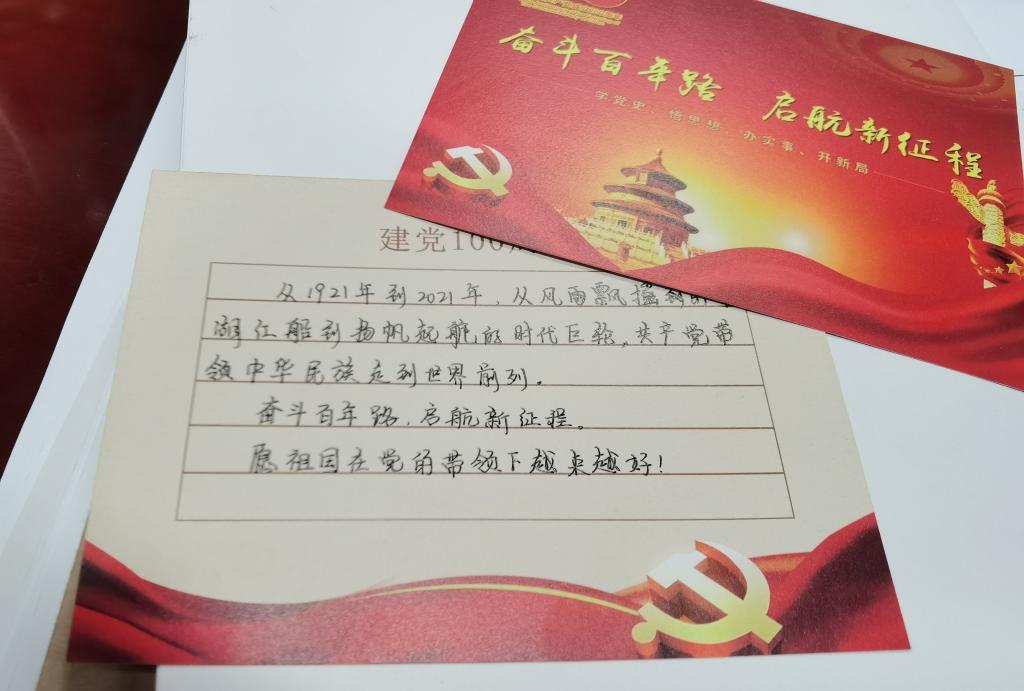 奋斗百年路 启航新征程
学党史、悟思想、办实事、开新局
建党100
从1921年到2021年，从风雨飘摇
湖江船到扬帆起航的时代巨轮。共产党带
领中华民族走到世界前列。
奋斗百年路，启航新征程。
愿祖国在党的带领下越来越好！